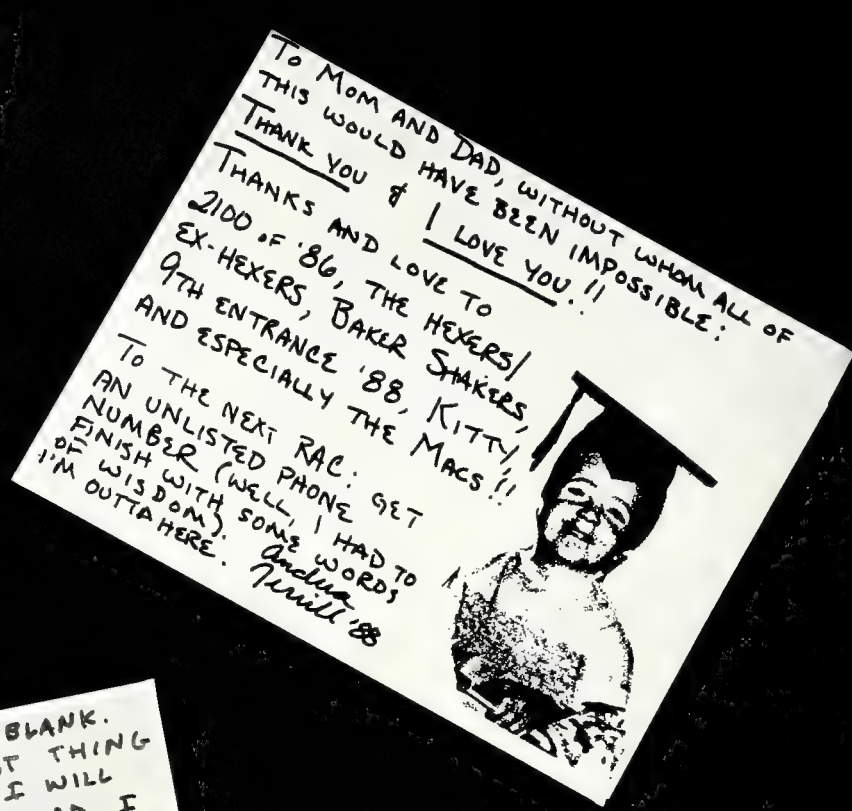 To MOM AND DAD, WITHOUT WHOM ALL OF
THIS WOULD HAVE BEEN IMPOSSIBLE:
THANK YOU & I LOVE YOU!!
THANKS AND LOVE TO
2100 OF '86, THE HEXERS/
EX-HEXERS, BAKER SHAKERS,
9TH ENTRANCE '88, KITTY,
AND ESPECIALLY THE MACS!!
TO THE NEXT RAC: GET
AN UNLISTED PHONE
NUMBER (WELL, I HAD TO
FINISH WITH SOME WORDS
OF WISDOM).
I'M OUTTA HERE.
Andrea
Terrill '88
BLANK.
T THING
I WILL
I